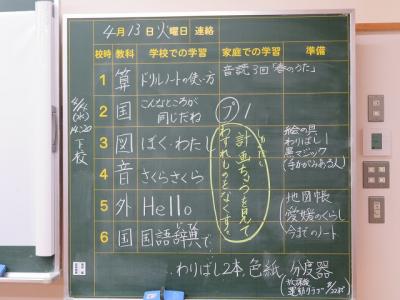 4月13日火曜日 連絡
校時 教科 学校での学習 家庭での学習 準備
1 算 ドリルノートの使い方 音読3回「春のうた」
2 国 こんなところが同じだね プ1
3 図 ぼく・わたし 絵の具
わりばし1
黒マジック
(手かがみある人)
4 音 さくらさくら
5 外 Hello 地図帳
愛媛のくらし
6 国 国語辞典で 今までのノート
じてん
めあて
計画ちょうを見て
わすれものをなくす。
(水)
14:20
下校
わりばし2本、色紙、分度器